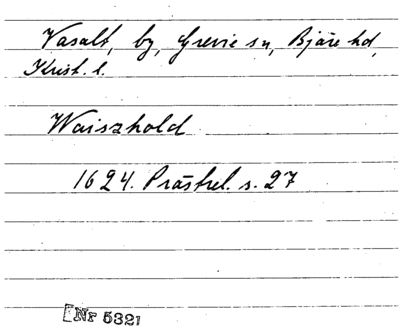 Vasalt, by, Grevie sn, Bjäre hd,
Krist. l.
Waiszhold
1624. Prästrel. s. 27
[Nr 5321